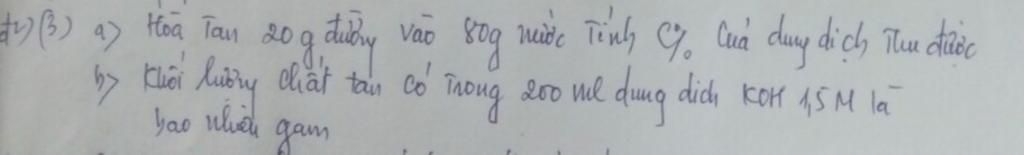 (3) a> Hoà Tan 20g đường vào 80g nước Tính C% Của dung dịch Thu được
b> Khối lượng chất tan có Trong 200 ml dung dịch KOH 1,5M là
bao nhiêu gam